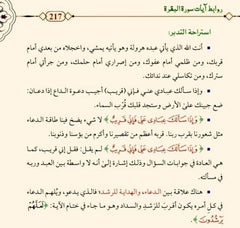 روابط آيات سورة البقرة
217
استراحة التدبر:
أنت الله الذي يأتي عبده هرولة وهو يأتيه يمشي، واخجلاه من بعدي أمام
قربك، ومن ظلمي أمام عفوك، ومن إصراري أمام حلمك، ومن جرأتي أمام
سترك، ومن تكاسلي عند ندائك.
وإذا سألك عبادي عني فـ(إني (قريب) أجيب دعوة الداع إذا دعان:
ضع جبينك على الأرض وستجد قلبك قُرْب السماء.
﴿وَإِذَا سَأَلَكَ عِبَادِي عَنِّي فَإِنِّي قَرِيبٌ﴾ لا شيء يضخ فينا طاقة الدعاء
مثل شعورنا بقرب ربنا. قربه أعظم من تقصيرنا وأكرم من بؤسنا وذنوبنا.
﴿وَإِذَا سَأَلَكَ عِبَادِي عَنِّي فَإِنِّي قَرِيبٌ﴾ لم يقل: فقل إني قريب، كما
هي العادة في جوابات السؤال وذلك إشارة إلى أنه لا واسطة بين العبد وربه
في الدعاء.
هناك علاقة بين الدعاء، والهداية للرشد؛ فالذي يدعو، ويُلهم الدعاء
في كل أمره يكون أقرب للرُشد والسداد وهو ما جاء في ختام الآية: ﴿لَعَلَّهُمْ
يَرْشُدُونَ﴾.